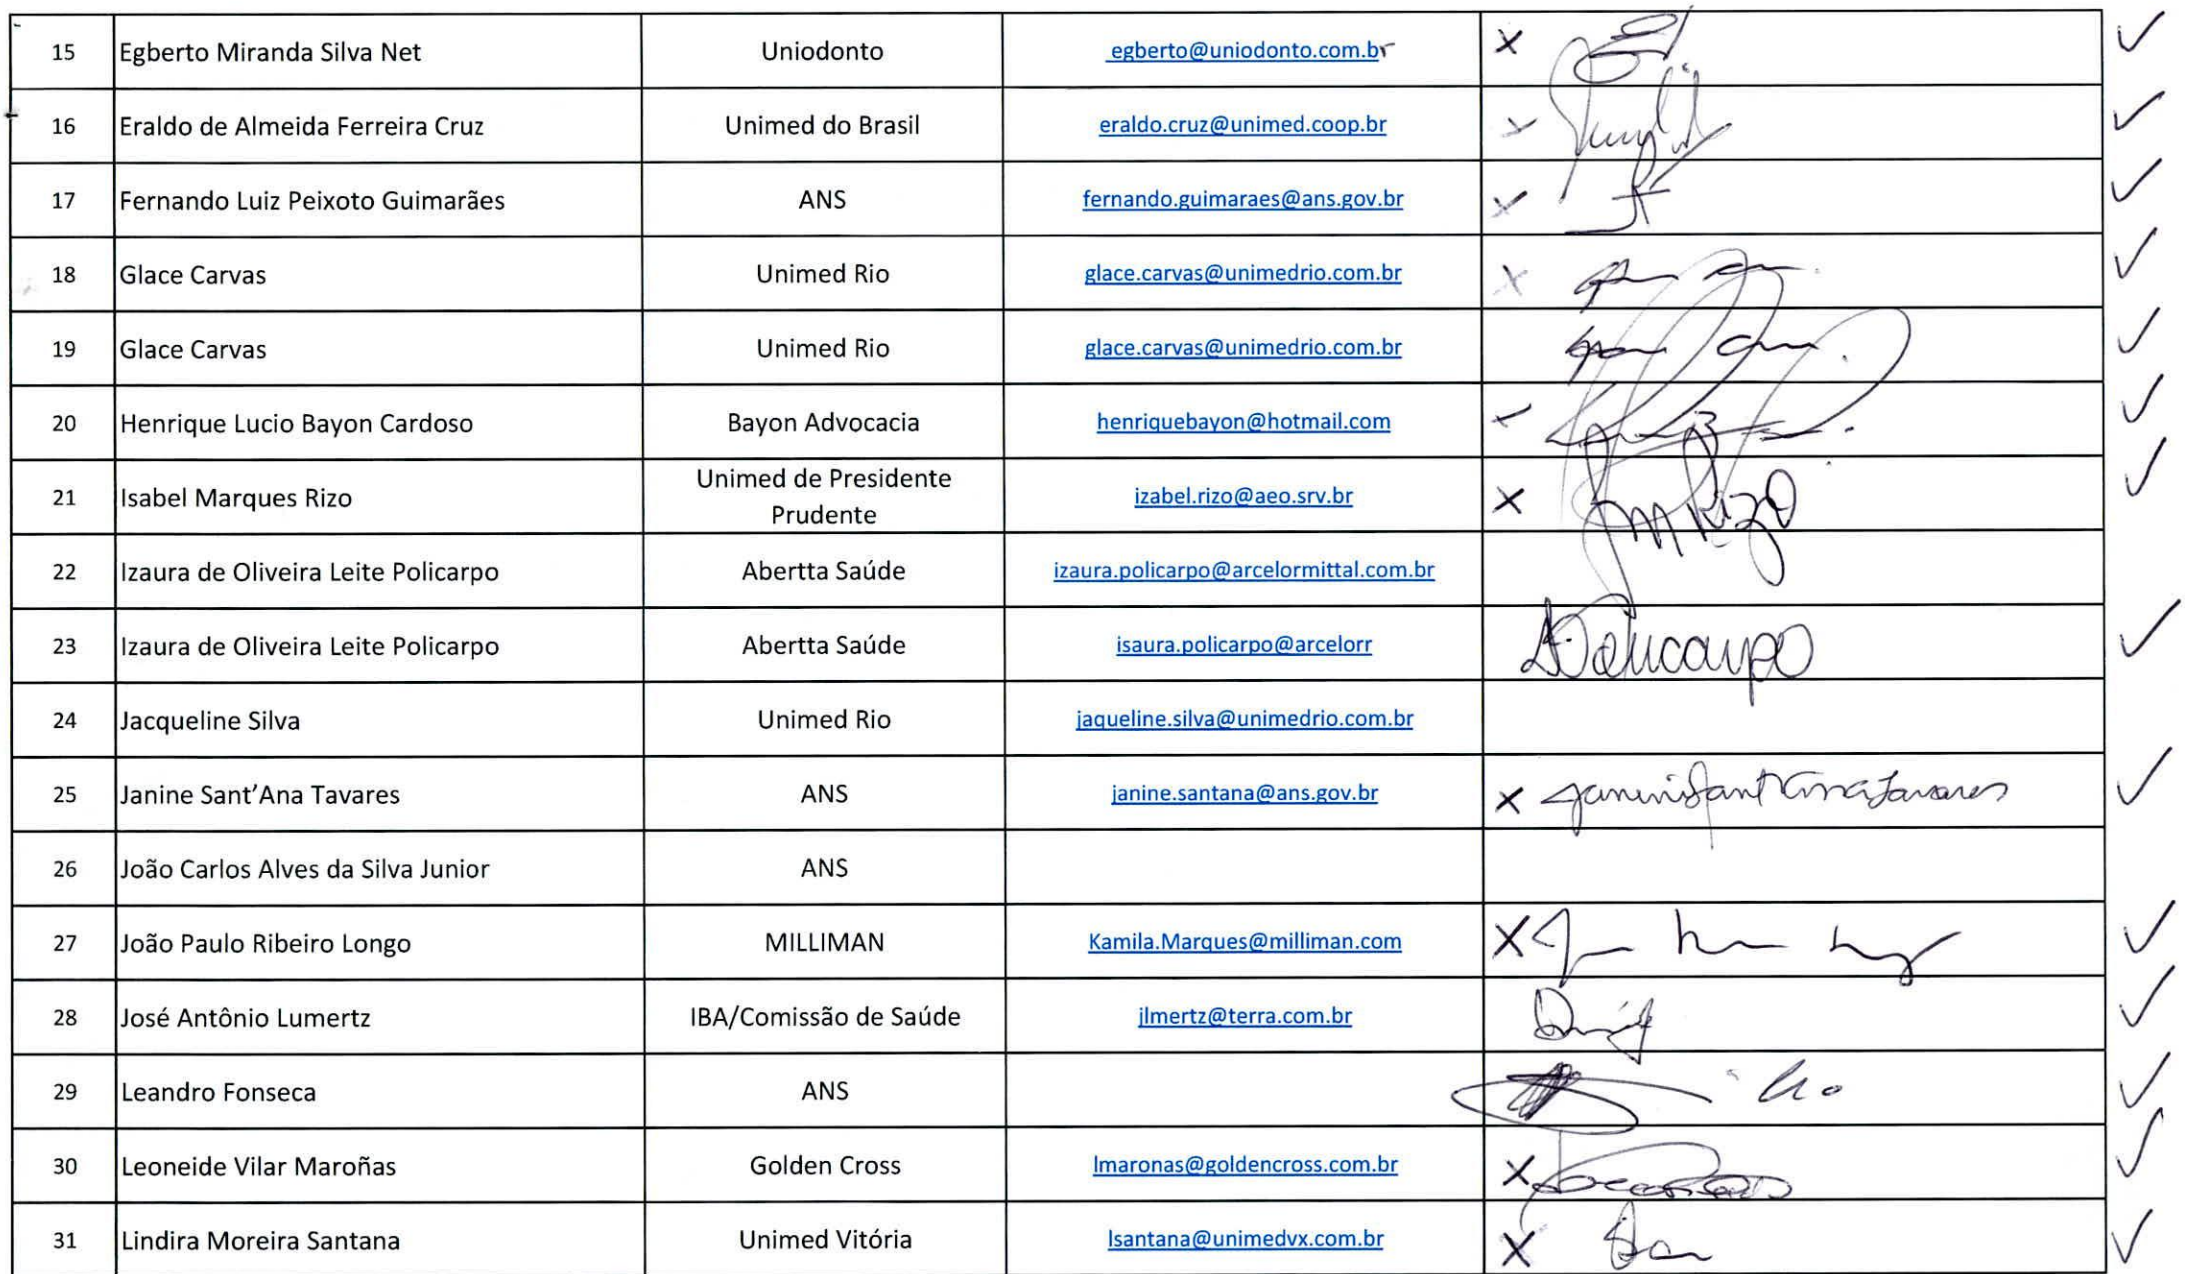 15 Egberto Miranda Silva Net Uniodonto egberto@uniodonto.com.br X
16 Eraldo de Almeida Ferreira Cruz Unimed do Brasil eraldo.cruz@unimed.coop.br X
17 Fernando Luiz Peixoto Guimarães ANS fernando.guimaraes@ans.gov.br X
18 Glace Carvas Unimed Rio glace.carvas@unimedrio.com.br X
19 Glace Carvas Unimed Rio glace.carvas@unimedrio.com.br
20 Henrique Lucio Bayon Cardoso Bayon Advocacia henriquebayon@hotmail.com X
21 Isabel Marques Rizo Unimed de Presidente
Prudente izabel.rizo@aeo.srv.br X Rizo
22 Izaura de Oliveira Leite Policarpo Abertta Saúde izaura.policarpo@arcelormittal.com.br
23 Izaura de Oliveira Leite Policarpo Abertta Saúde isaura.policarpo@arcelorr Policarpo
24 Jacqueline Silva Unimed Rio jaqueline.silva@unimedrio.com.br
25 Janine Sant’Ana Tavares ANS janine.santana@ans.gov.br X Janine Sant'Ana Tavares
26 João Carlos Alves da Silva Junior ANS
27 João Paulo Ribeiro Longo MILLIMAN Kamila.Marques@milliman.com X
28 José Antônio Lumertz IBA/Comissão de Saúde jlmertz@terra.com.br
29 Leandro Fonseca ANS
30 Leoneide Vilar Maroñas Golden Cross lmaronas@goldencross.com.br X
31 Lindira Moreira Santana Unimed Vitória lsantana@unimedvx.com.br X